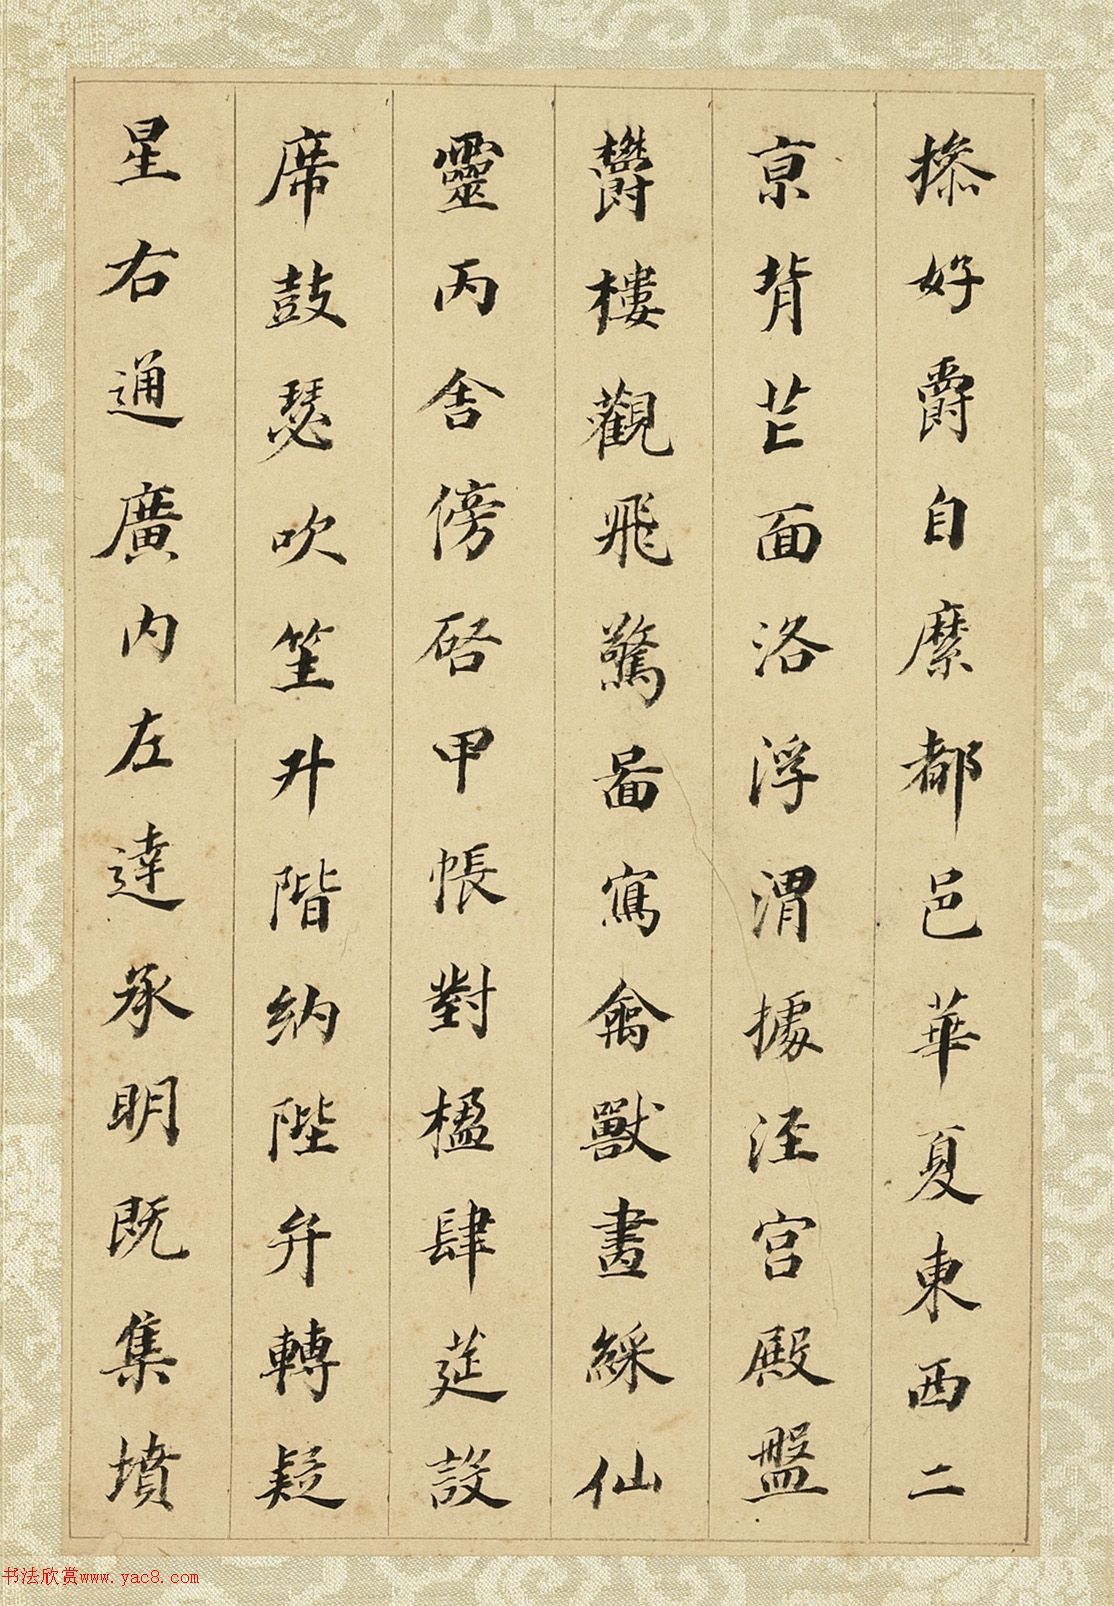 操好爵自縻都邑華夏東西二
京背芒面洛浮渭據涇宮殿盤
鬱樓觀飛驚啚寫禽獸畫綵仙
靈丙舍傍啓甲帳對楹肆莚設
席鼓瑟吹笙升階納陛弁轉疑
星右通廣內左達承明既集墳
书法欣赏www.yac8.com